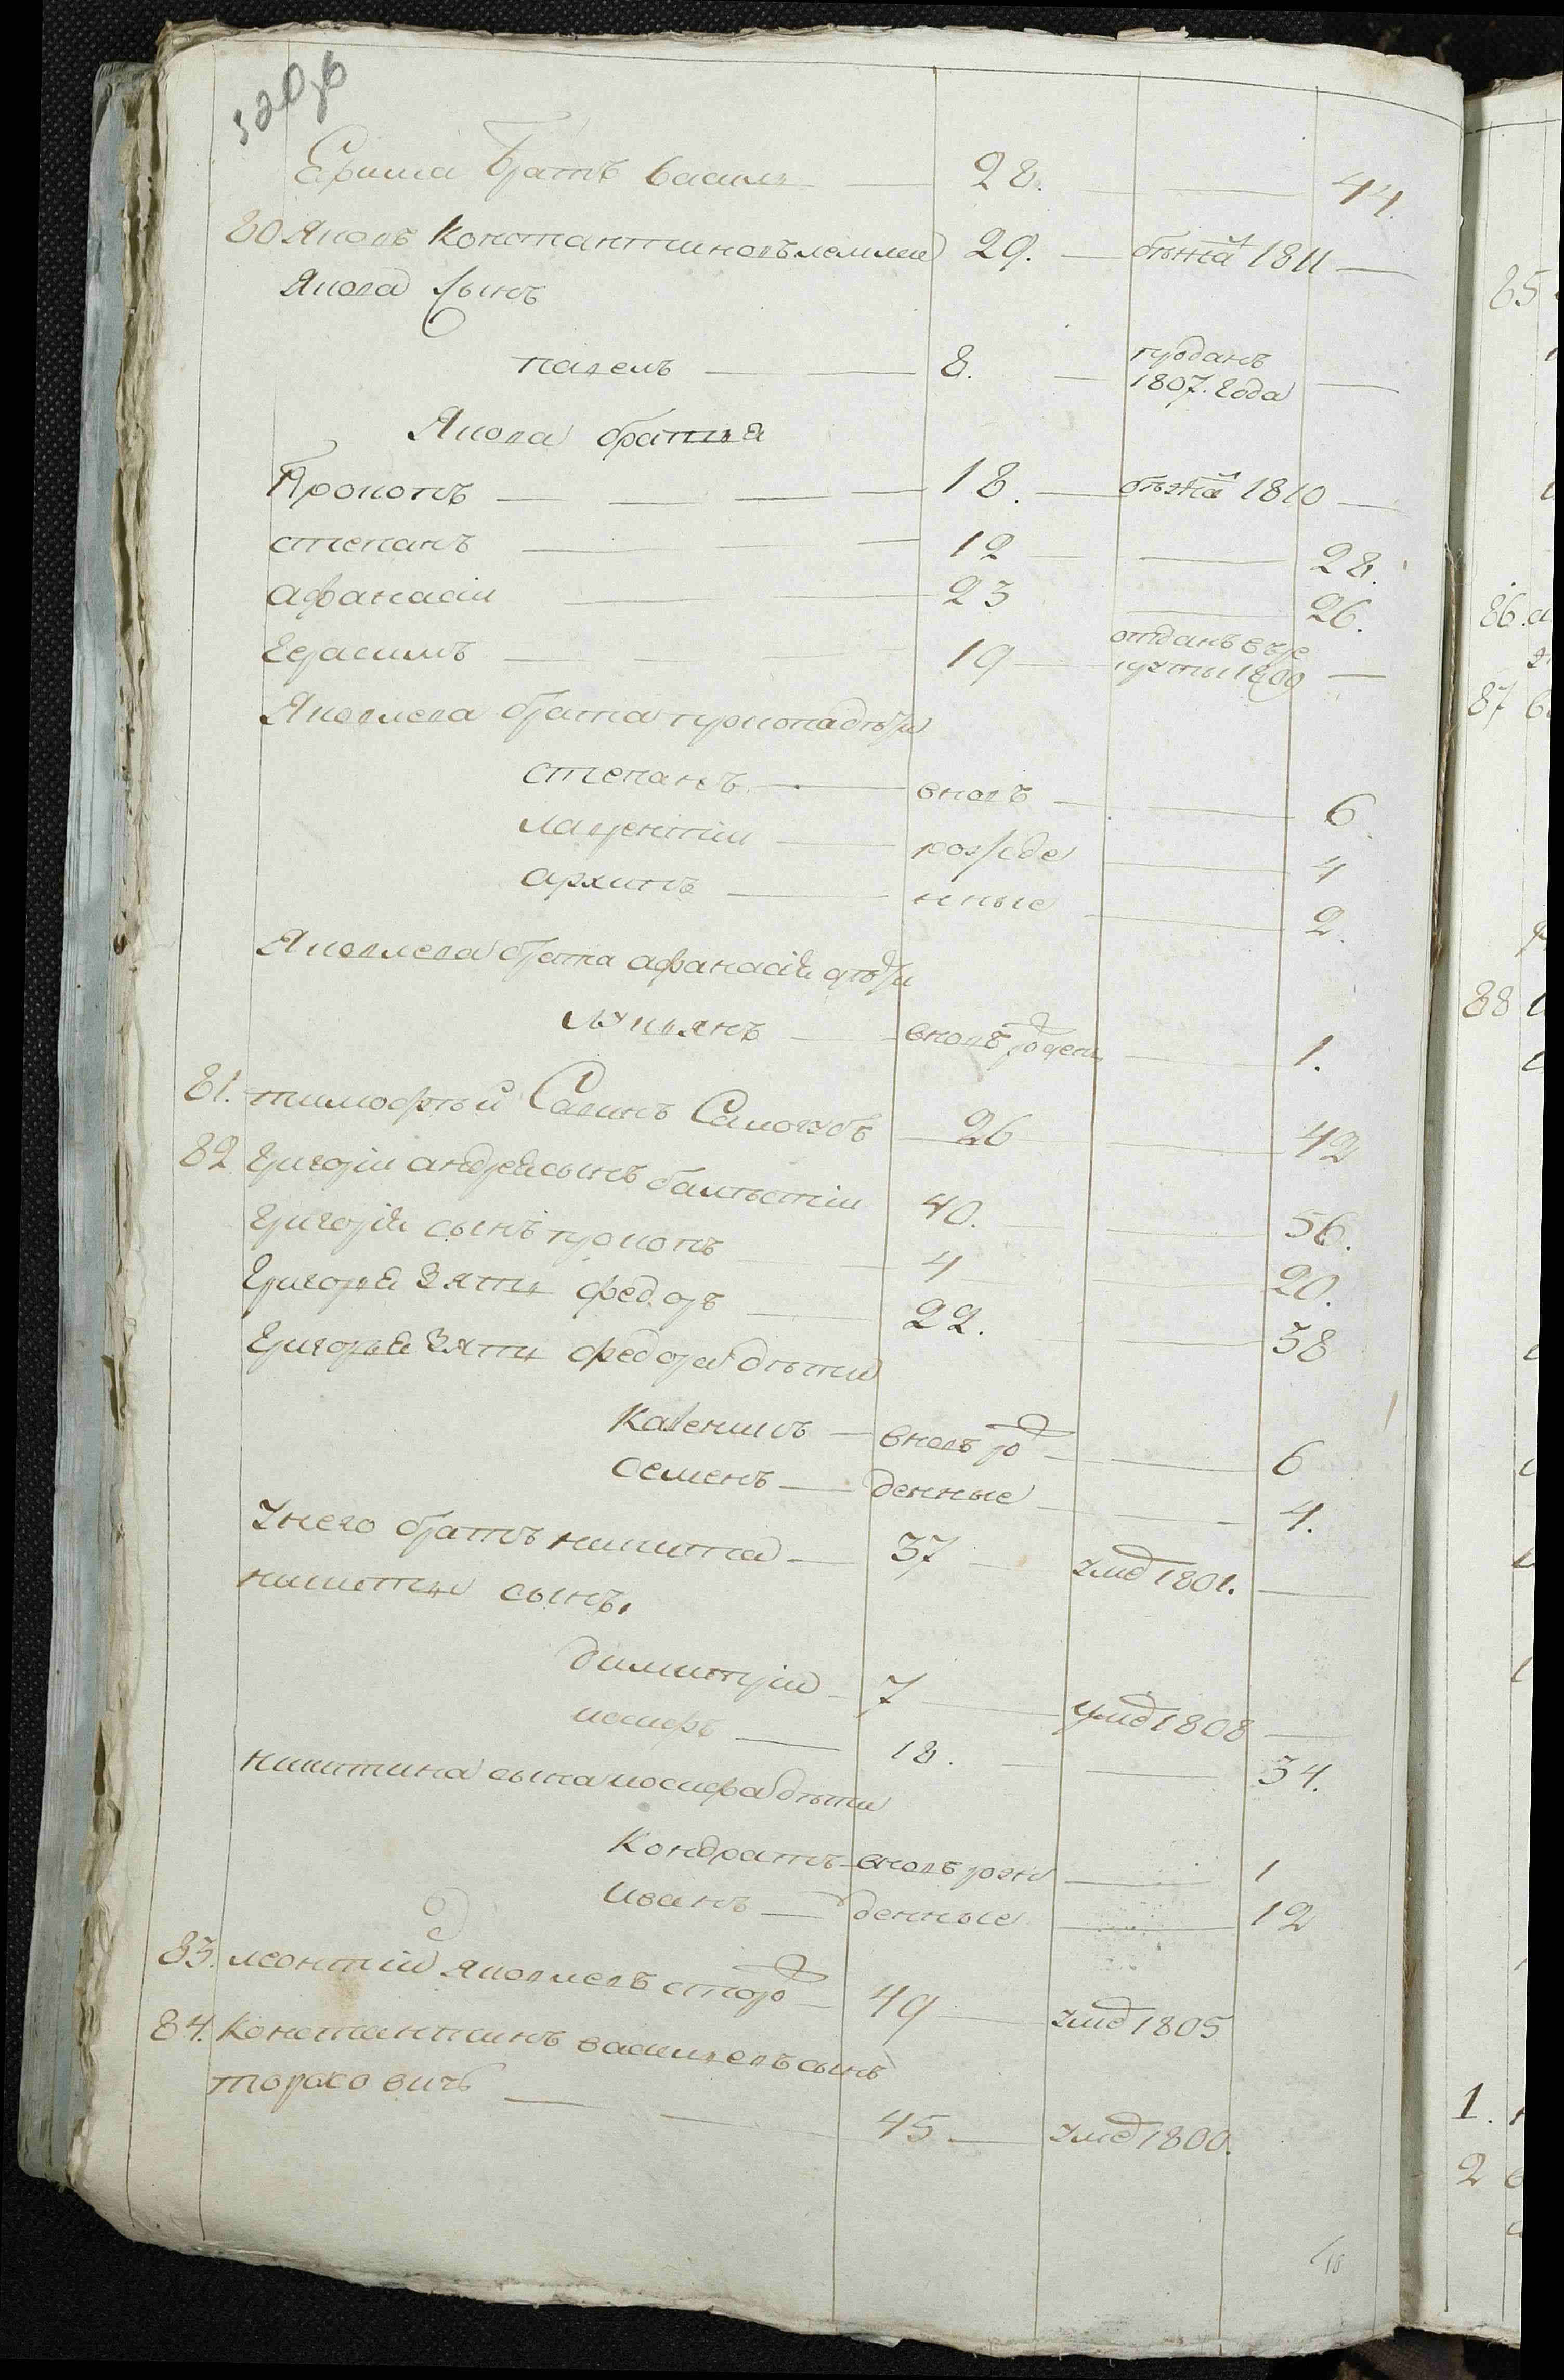 520об
Ерима братъ васил 28. 44.
80 Яковъ Константиновъ 29. бежа 1811
Якова сынъ
павелъ 8. проданъ
1807. года
Якова братья
Прокопъ 18. бежа 1810
степанъ 12 28.
афанасіи 23 26.
герасимъ 19 отданъ в ре
круты 1800
Яковлева брата прокопа дети
степанъ вновь 6
лаврентіи рожде 4
архипъ нные 2.
Яковлева брата афанасія дети
лукьянъ вновь рожден 1.
81. тимофеи Савинъ Самогубъ 26 42
82. григоріи андрея сынъ 40. 56.
григорія сынъ прокопъ 4 20.
григорья зять федоръ 22. 38
григорья зятя федора дети
Каленикъ вновь ро 6
семенъ жденные 4.
унего братъ никита 37 умд 1801.
никиты сынъ
димитріи 7 умд 1808
иосифъ 18. 34.
никитина сына иосифа дети
Кондратъ вновь рож 1
иванъ денные 12
83. леонтіи яковлевъ 49 умд 1805
84. Константинъ васильевъ сынъ
тарасовичъ 45 умд 1800.
85
86. а
87
88
1.
2